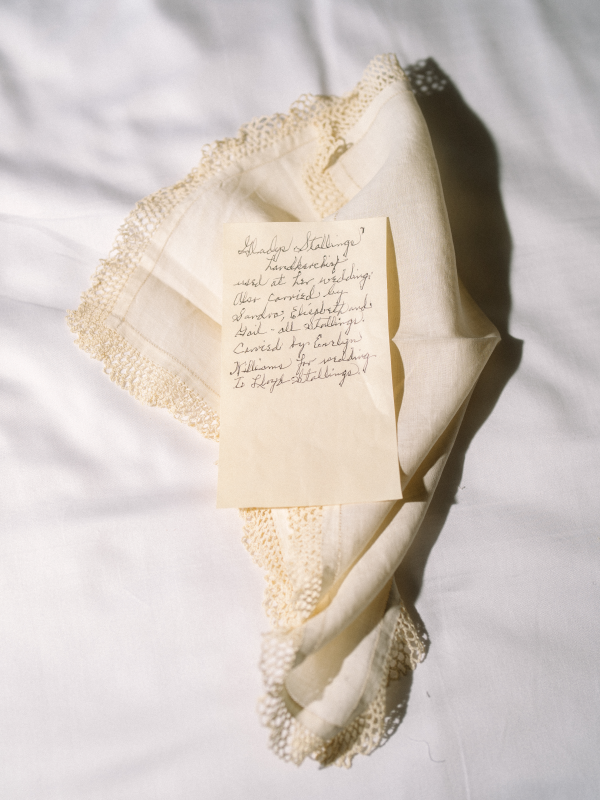 Gladys Stallings'
handkerchief
used at her wedding.
Also carried by
Sandra, Elizabeth and
Gail - all Stallings.
Carried by Evelyn
Williams for wedding
to Lloyd Stallings